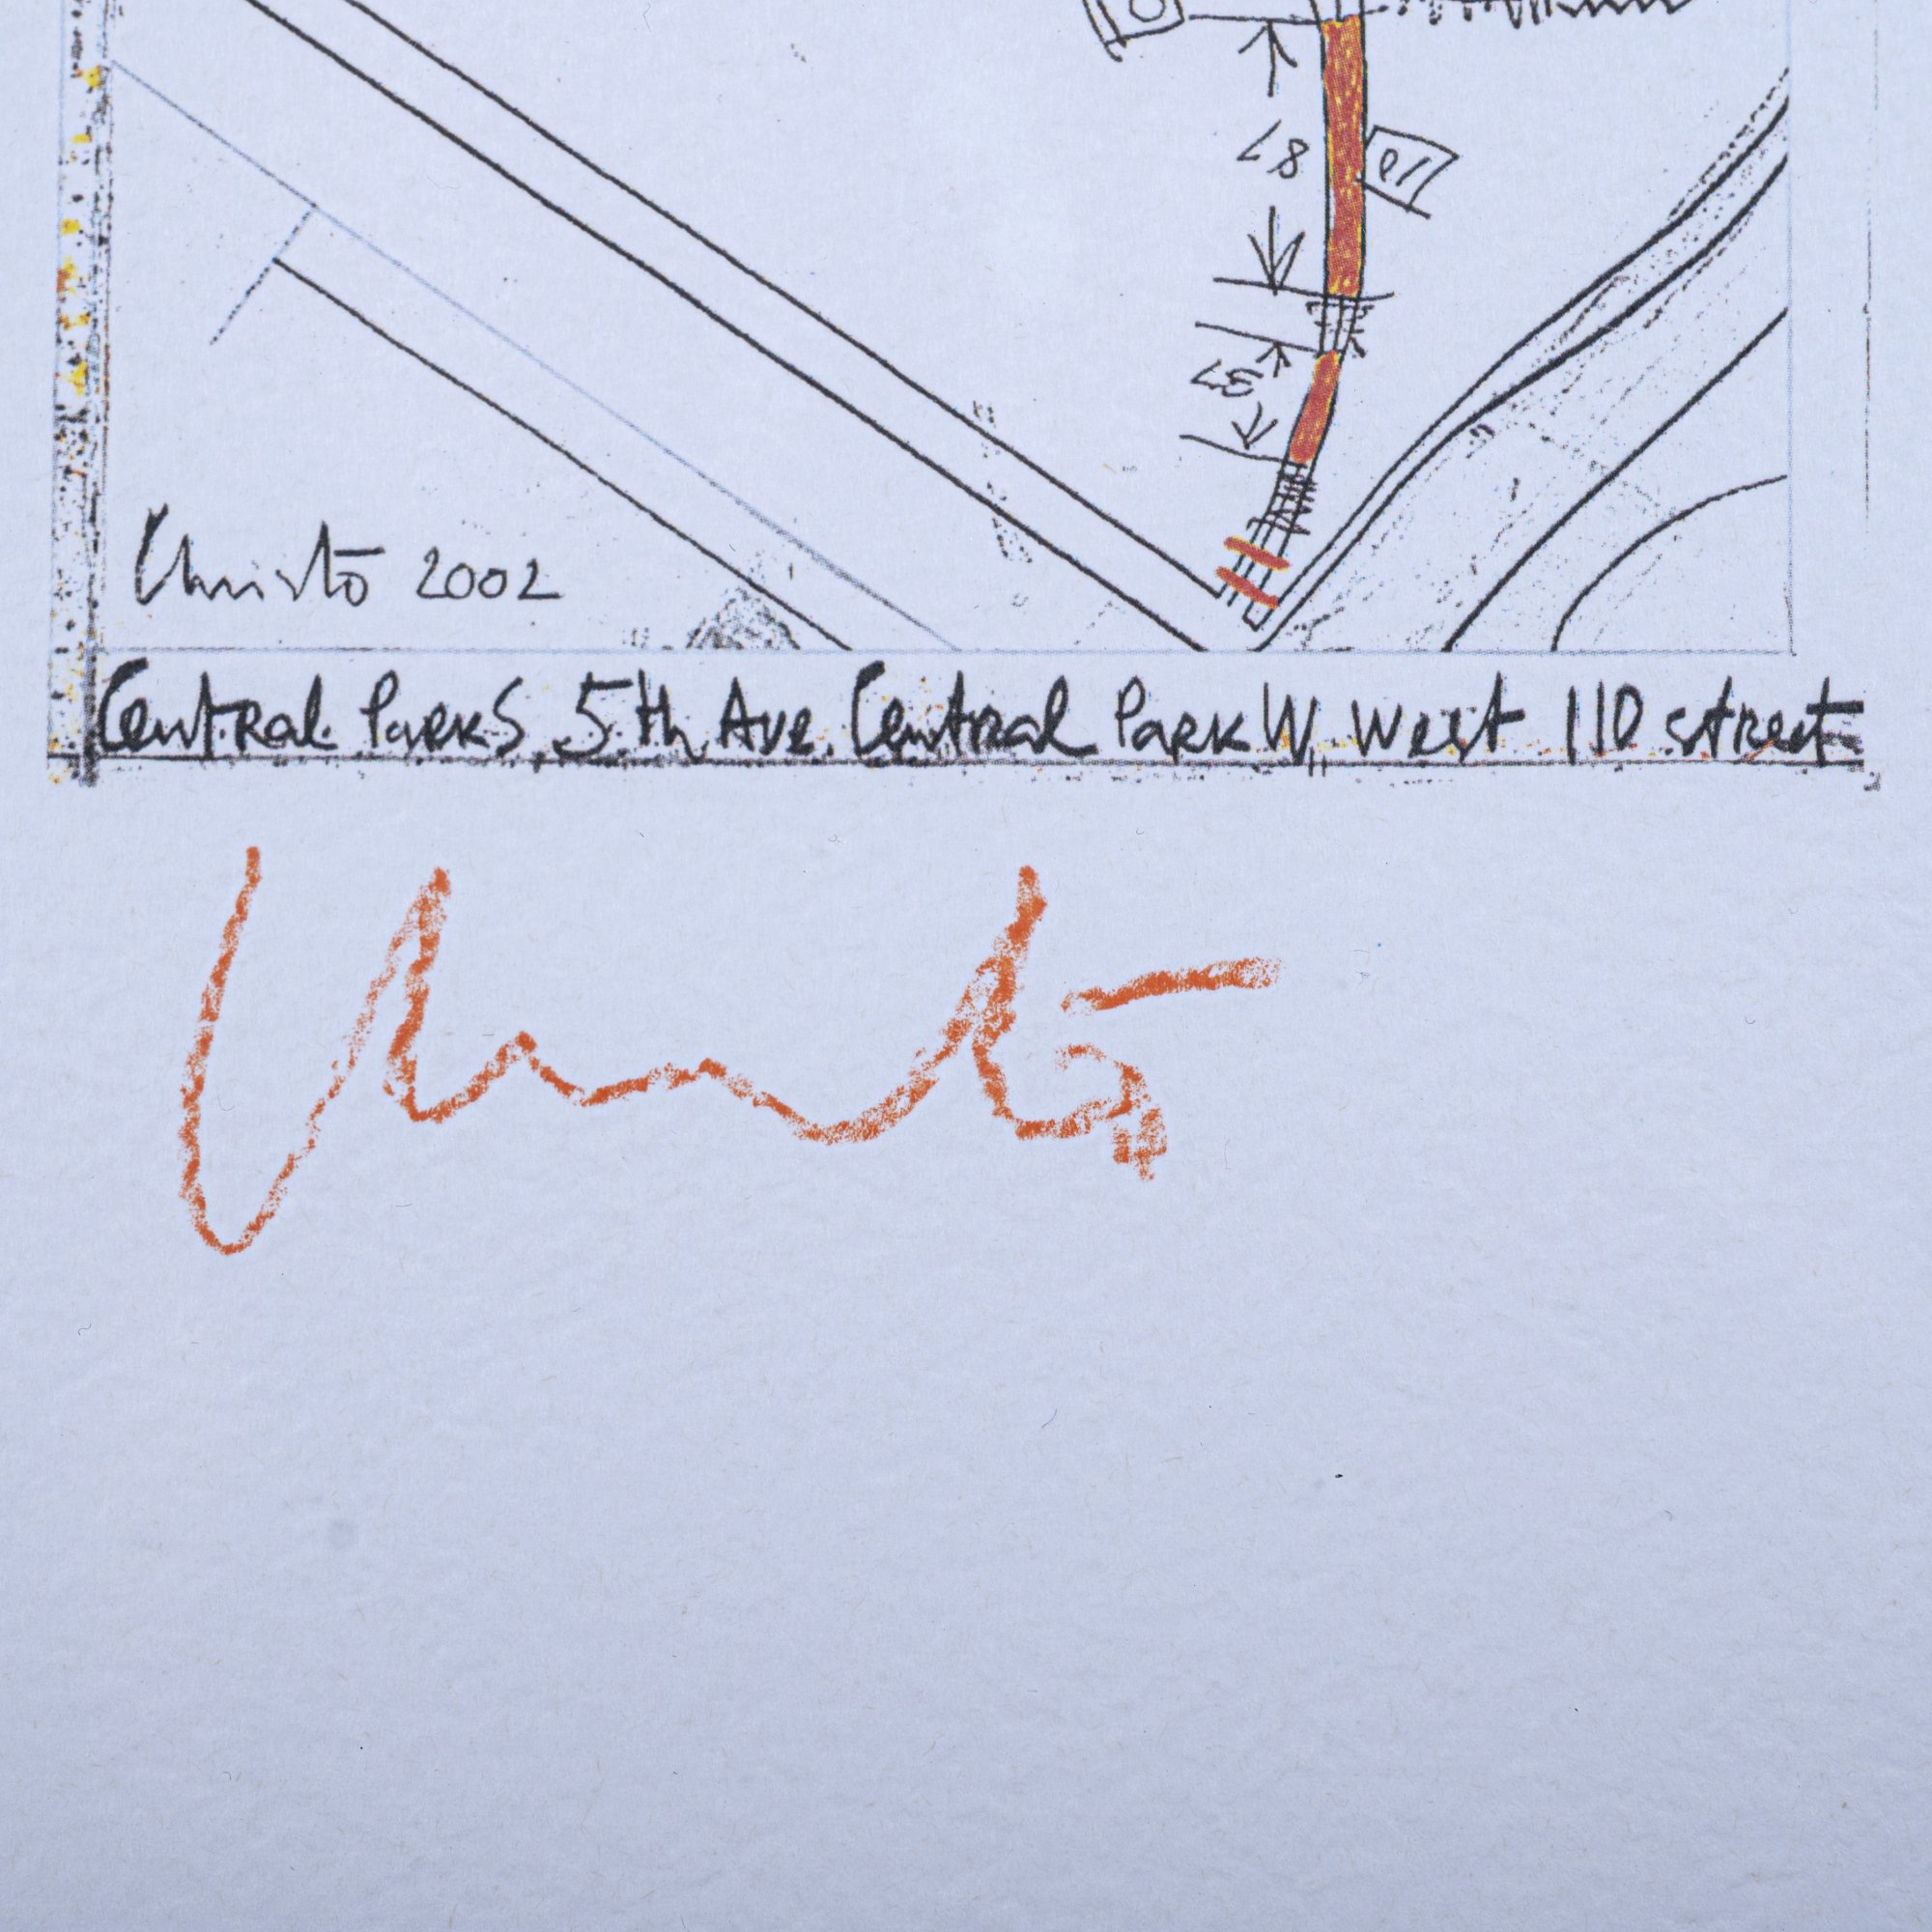 L8
10
L3
Christo 2002
Central Park S, 5th Ave. Central Park W, West 110 street
Christo